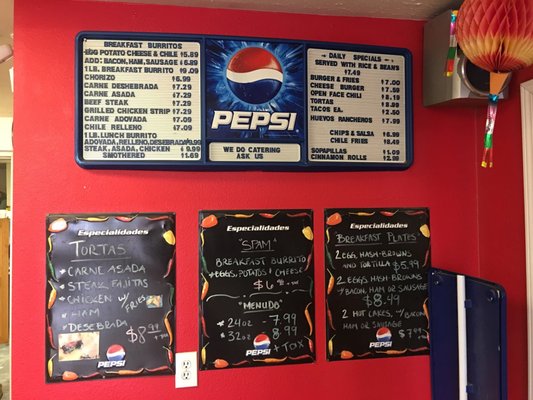 BREAKFAST BURRITOS
EGG POTATO CHEESE & CHILE $5.89
ADD: BACON, HAM, SAUSAGE
1 LB. BREAKFAST BURRITO $9.09
CHORIZO $6.99
CARNE ASADA $7.29
BEEF STEAK $7.29
GRILLED CHICKEN STRIP $7.29
CARNE ADOVADA $7.09
CHILE RELLENO $7.09
1 LB. LUNCH BURRITO
ADOVADA, RELLENO, DESEBRADA
STEAK, ASADA, CHICKEN
SMOTHERED $11.69
PEPSI
WE DO CATERING
ASK US
DAILY SPECIALS
SERVED WITH RICE & BEANS
BURGER & FRIES
CHEESE BURGER
OPEN FACE CHILI
TORTAS
TACOS EA.
HUEVOS RANCHEROS
CHIPS & SALSA
CHILE FRIES
SOPAPILLAS
CINNAMON ROLLS
Especialidades
TORTAS
CARNE ASADA
STEAK FAJITAS
CHICKEN W/ FRIES
HAM
DESEBRADA
$8.99
PEPSI
Especialidades
"SPAM"
BREAKFAST BURRITO
EGGS, POTATO & CHEESE
"MENUDO"
24oz - 7.99
32oz 8.99
+ TAX
PEPSI
Especialidades
BREAKFAST PLATES
2 EGGS, HASH-BROWNS
AND TORTILLA $5.99
2 EGGS, HASH-BROWNS
BACON, HAM OR SAUSAGE
$8.49
2 HOT CAKES, BACON,
HAM OR SAUSAGE
PEPSI